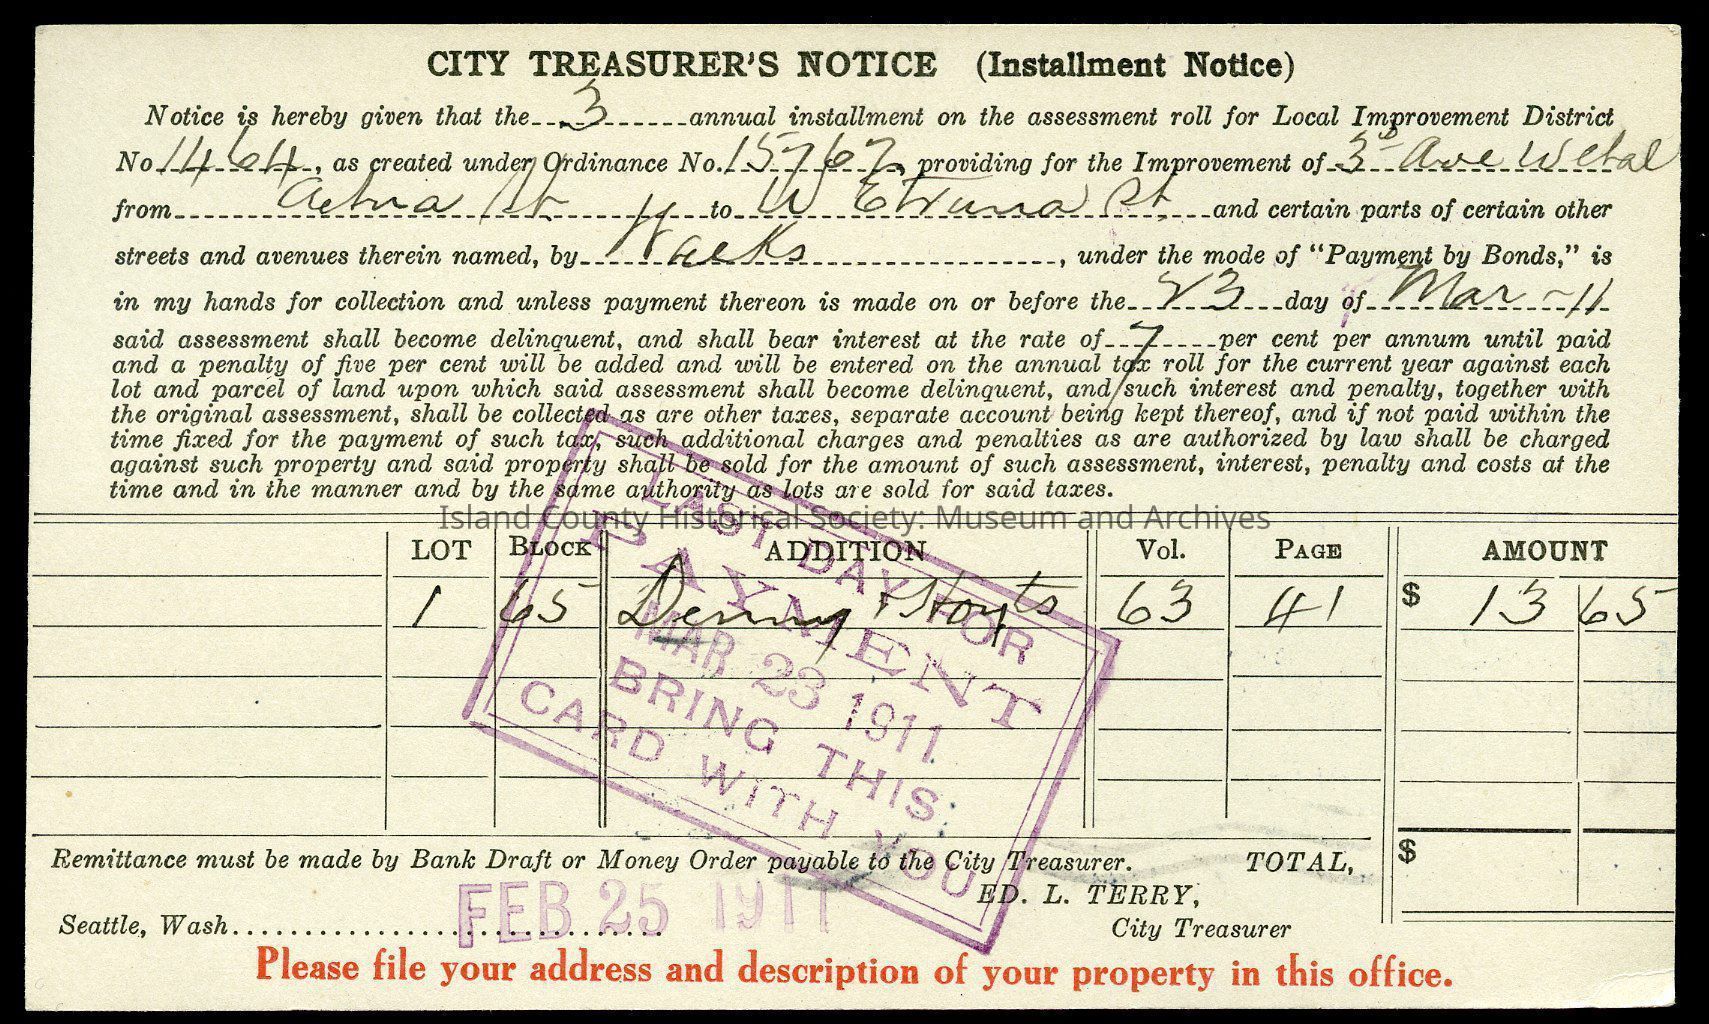 CITY TREASURER'S NOTICE (Installment Notice)
Notice is hereby given that the 3 annual installment on the assessment roll for Local Improvement District
No 1464, as created under Ordinance No. 15767, providing for the Improvement of 3rd Ave W et al
from Aetna St to W Etruria St, and certain parts of certain other
streets and avenues therein named, by Walks, under the mode of "Payment by Bonds," is
in my hands for collection and unless payment thereon is made on or before the 23 day of Mar - 11
said assessment shall become delinquent, and shall bear interest at the rate of 7 per cent per annum until paid
and a penalty of five per cent will be added and will be entered on the annual tax roll for the current year against each
lot and parcel of land upon which said assessment shall become delinquent, and such interest and penalty, together with
the original assessment, shall be collected as are other taxes, separate account being kept thereof, and if not paid within the
time fixed for the payment of such tax, such additional charges and penalties as are authorized by law shall be charged
against such property and said property shall be sold for the amount of such assessment, interest, penalty and costs at the
time and in the manner and by the same authority as lots are sold for said taxes.
Island County Historical Society: Museum and Archives
LOT BLOCK ADDITION Vol. PAGE AMOUNT
1 65 Denny & Hoyts 63 41 $ 13 65
LAST DAY FOR
PAYMENT
MAR 23 1911
BRING THIS
CARD WITH YOU
Remittance must be made by Bank Draft or Money Order payable to the City Treasurer. TOTAL, $
ED. L. TERRY,
Seattle, Wash. FEB 25 1911 City Treasurer
Please file your address and description of your property in this office.